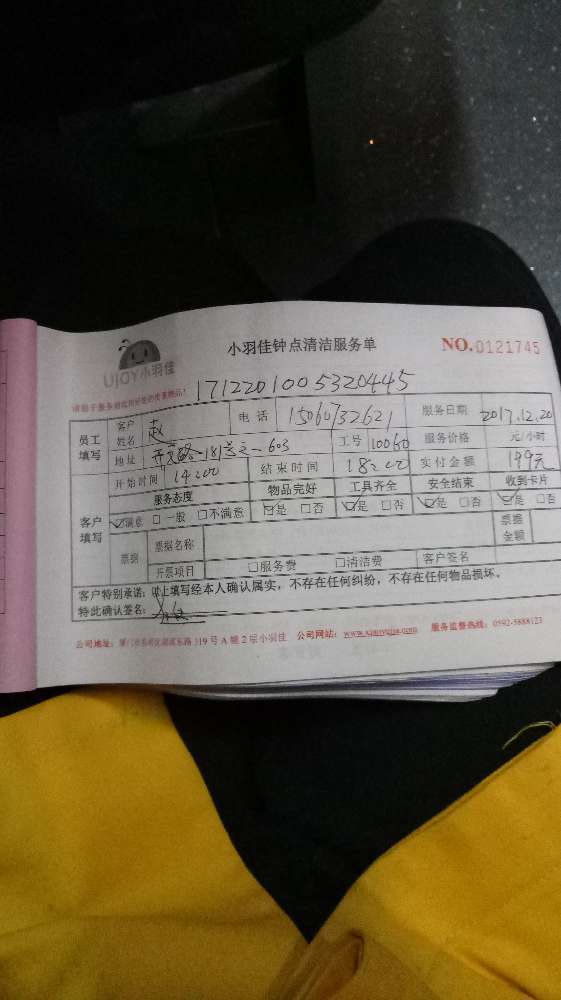 UJOY小羽佳
小羽佳钟点清洁服务单
NO.0121745
1712201005320445
员工填写 客户姓名 赵 电话 15060732621 服务日期 2017.12.20
地址 181号之一603 工号 10060 服务价格 元/小时
开始时间 14:00 结束时间 18:00 实付金额 199元
客户填写 服务态度 物品完好 工具齐全 安全结束 收到卡片
☑满意 □一般 □不满意 ☑是 □否 ☑是 □否 ☑是 □否 ☑是 □否
票据 票据名称 票据金额
开票项目 □服务费 □清洁费 客户签名
客户特别承诺：以上填写经本人确认属实，不存在任何纠纷，不存在任何物品损坏。
特此确认签名：
公司地址： 319号A幢2层小羽佳 公司网站： 服务监督热线：0592-5888123